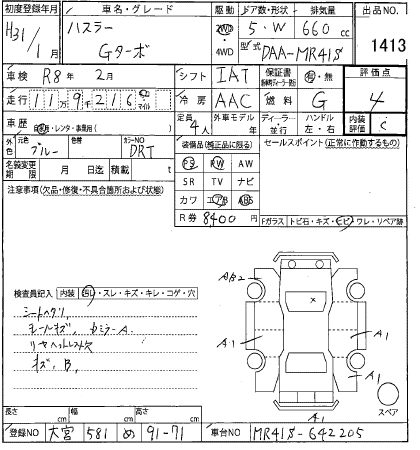 初度登録年月 車名・グレード 駆動 ドア数・形状 排気量 出品NO.
H31/1月 ハスラー Gターボ 2WD 4WD 5・W 660cc 1413
型式 DAA-MR41S
車検 R8年 2月 シフト IAT 保証書 有・無 評価点
走行 11万9千216 km マイル 冷房 AAC 燃料 G 4
車歴 自家・レンタ・事業用( ) 定員 4人 外車モデル 年 ディーラー・並行 ハンドル 左・右 内装評価 C
外色 元色 ブルー 色替 カラーNO DRT 装備品(純正品に限る) セールスポイント(正常に作動するもの)
名義変更期限 月 日迄 積載 t PS PW AW
注意事項(欠品・修復・不具合箇所および状態) SR TV ナビ
カワ エアB ABS
R券 8400円 Fガラス トビ石・キズ・ヒビ・ワレ・リペア跡
検査員記入 内装 汚レ・スレ・キズ・キレ・コゲ・穴
シートヘタリ
A1
A1
A1
A1
スペア
キズ、B.
長さ cm 幅 cm 高さ cm
登録NO 大宮 581 め 91-71 車台NO MR41S-642205